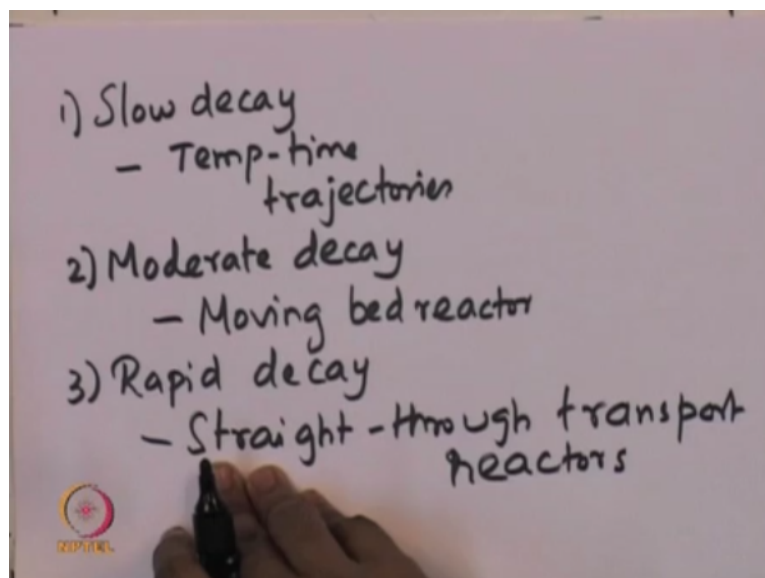 1) Slow decay
- Temp-time
trajectories
2) Moderate decay
- Moving bed reactor
3) Rapid decay
- Straight-through transport
reactors
NPTEL